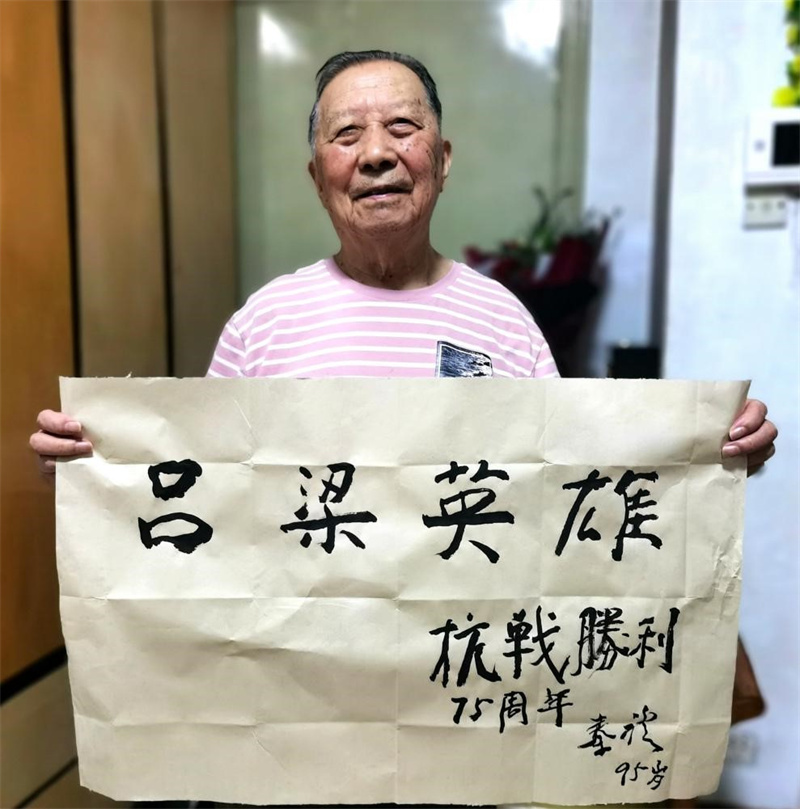 吕梁英雄
抗戦勝利
75周年
秦
95岁